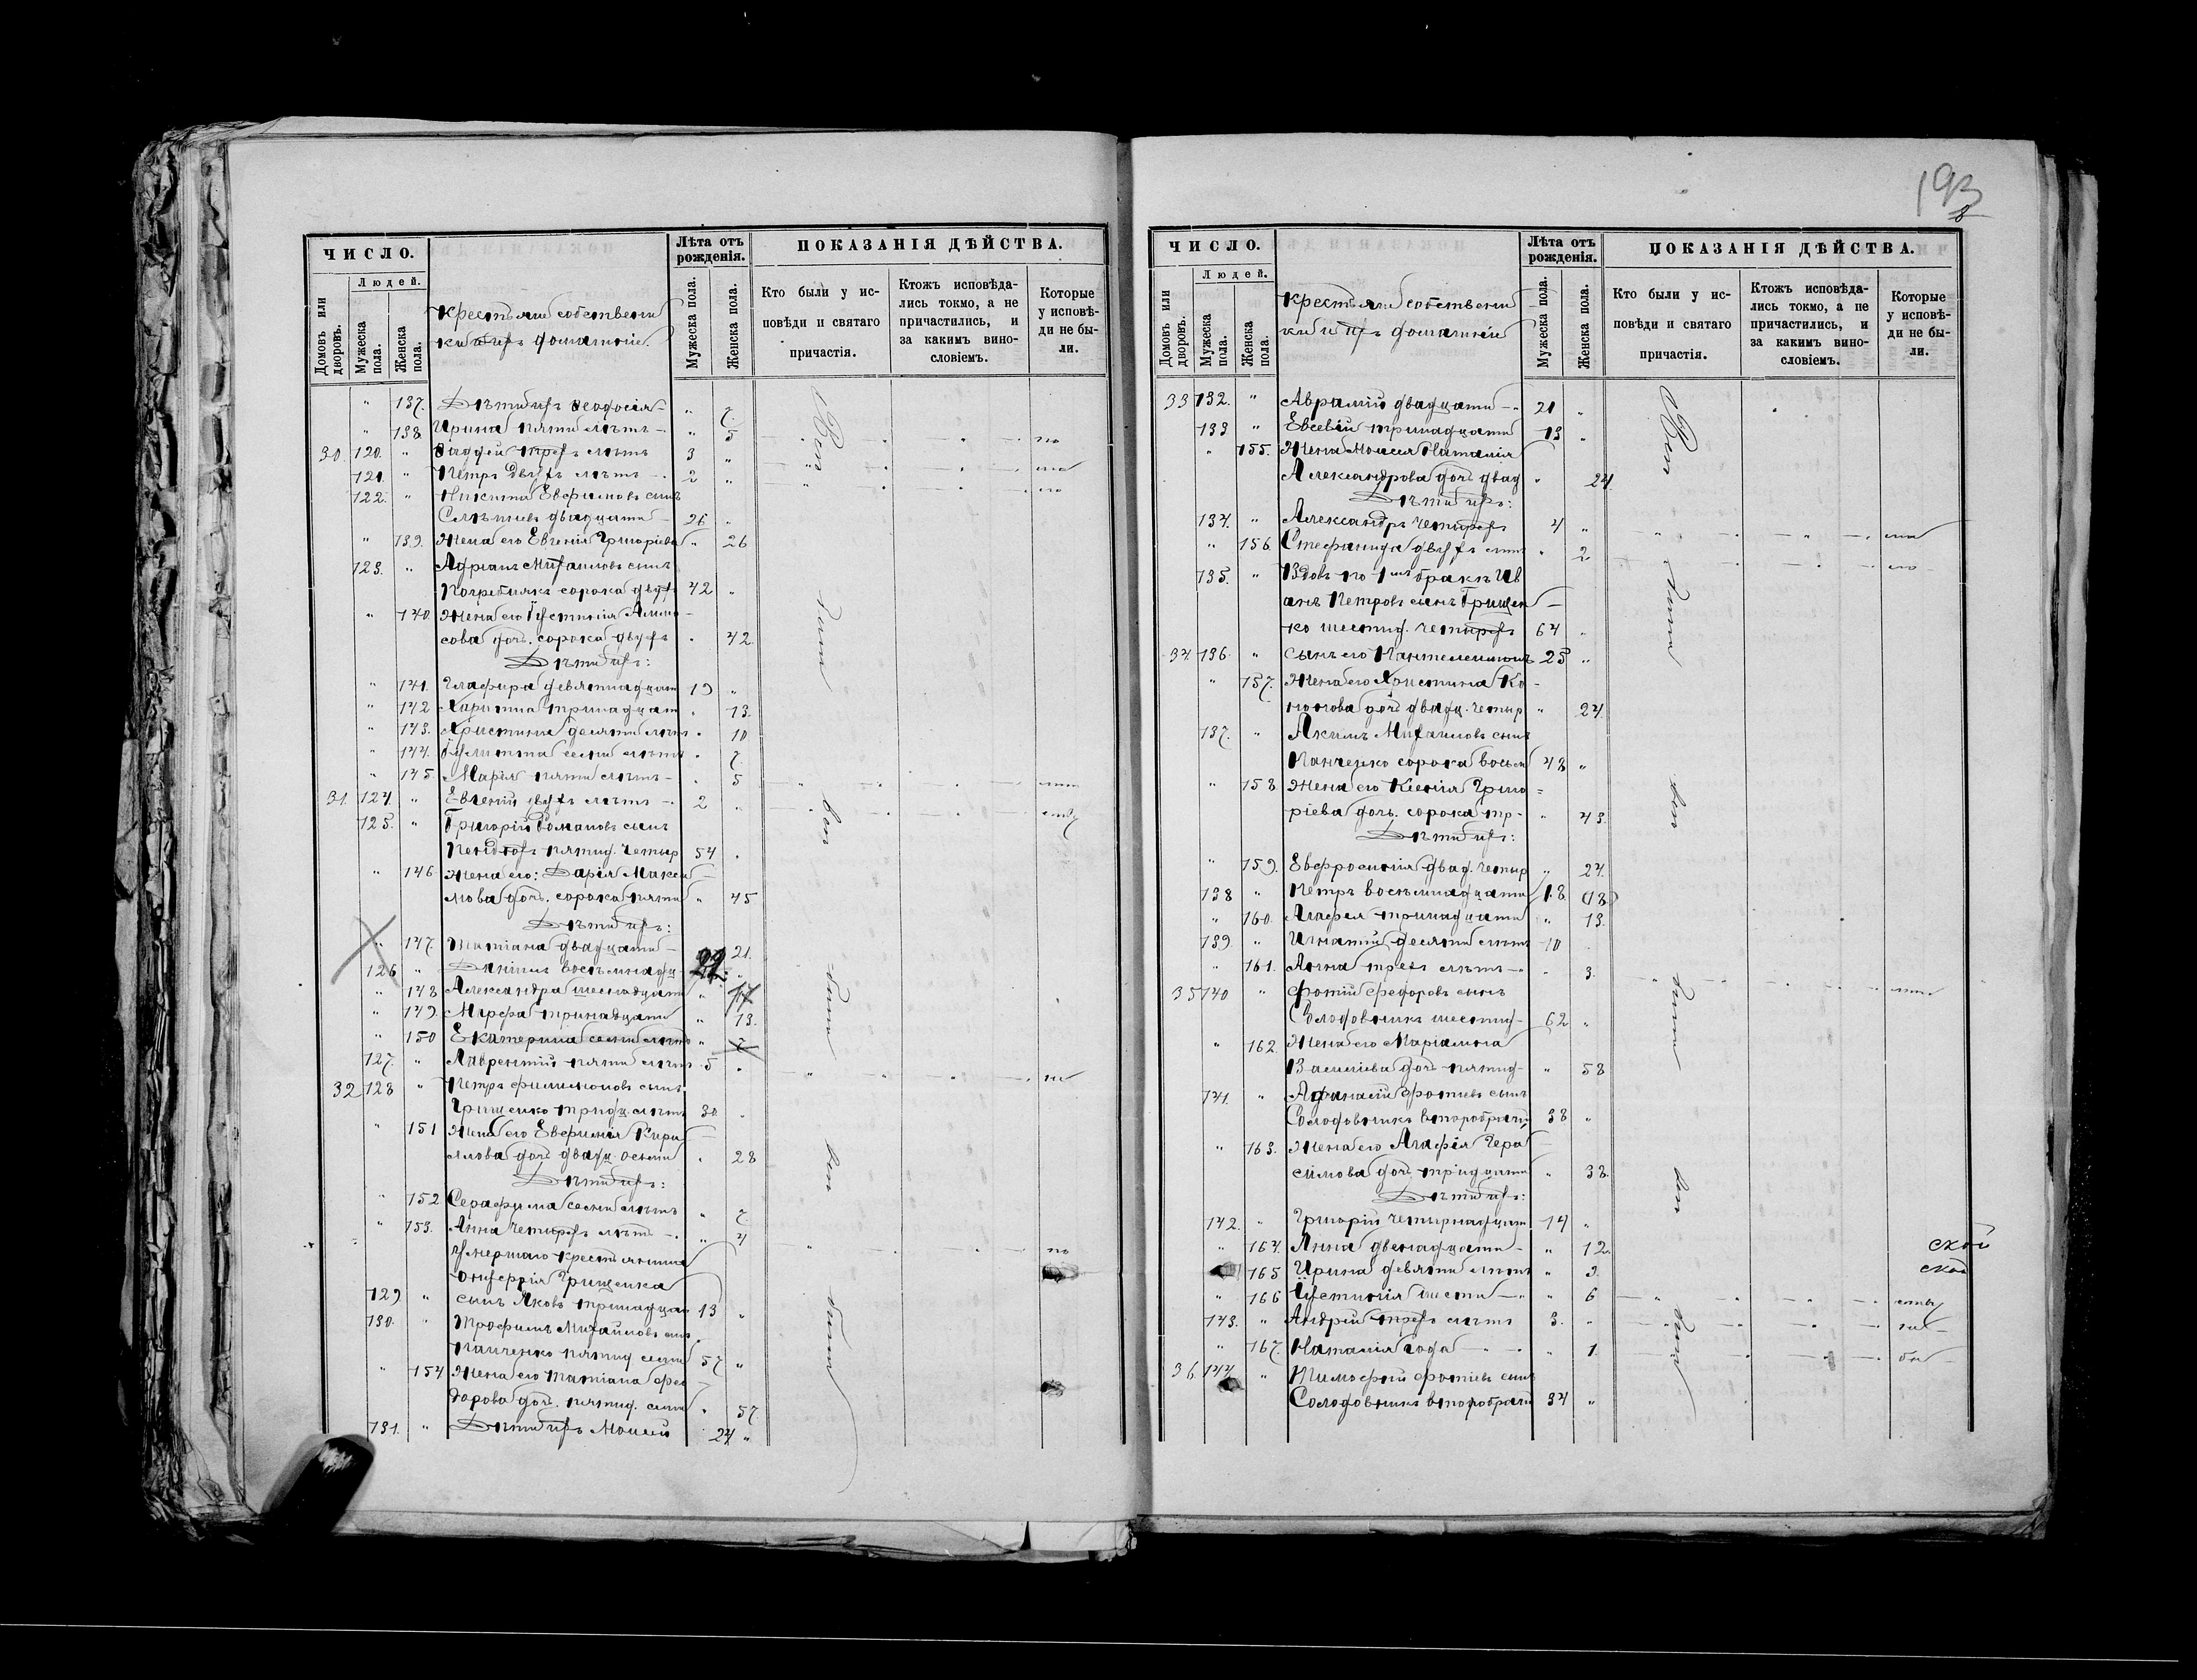 193
ЧИСЛО.
Людей.
Домовъ или дворовъ.
Мужеска пола.
Женска пола.
Крестьяне собственни
ки и ихъ домашніе.
Лѣта отъ рожденія.
Мужеска пола.
Женска пола.
ПОКАЗАНІЯ ДѢЙСТВА.
Кто были у ис-
повѣди и святаго
причастія.
Ктожъ исповѣда-
лись токмо, а не
причастились, и
за какимъ вино-
словіемъ.
Которые
у исповѣ-
ди не бы-
ли.
" 137. Дѣти ихъ Ѳеодосія " 7.
" 138. Ирина пяти лѣтъ " 5
30. 120. " Ѳаддей трехъ лѣтъ 3 "
121. " Петръ двухъ лѣтъ 2 "
122. " Никита Евфимовъ сынъ
двадцати 26 "
" 139. Жена его Евгенія Григоріева " 26
123. " Адріанъ Михаиловъ сынъ
сорока двух 42 "
" 140. Жена его Іустинія
сова доч. сорока двухъ " 42.
Дѣти ихъ:
" 141. Глафира девятнадцат 19 "
" 142 Харитина тринадцат " 13.
" 143. Христина десяти лѣтъ " 10
" 144. Іулитта семи лѣтъ " 7.
" 145. Марія пяти лѣтъ " 5
31. 124. " Евгеній двухъ лѣтъ 2 "
125. " Григорій Романовъ сынъ
пятид. четыр 54 "
" 146 Жена его: Дарія Макси
мова доч. сорока пяти " 45
Дѣти ихъ:
" 147. Татіана двадцати 21.
126 " Даніилъ восьмнадц "
" 148 Александра шестнадцати " 17
" 149. Марфа тринадцати " 13.
" 150 Екатерина семи лѣтъ " 7
127. " Лаврентій пяти лѣтъ 5 "
32 128 " Петръ Филимоновъ сынъ
Грищенко тридц. лѣтъ 30 "
" 151 Жена его Евфимія Кири
лова доч двадц. осьми " 28
Дѣти ихъ:
" 152 Серафима семи лѣтъ " 7.
" 153. Анна четырехъ лѣтъ " 4
Умершаго крестьянина
Онуфрія Грищенка
129 " сынъ Яковъ тринадцат 13 "
130. " Трофимъ Михайловъ сынъ
Панченко пятид семи 57 "
" 154 Жена его Татіана Фео
дорова доч. пятид. семи " 57.
131. " Дѣти ихъ Моисей 24 "
Вси
были
вси
были
вси
были
ЧИСЛО.
Людей.
Домовъ или дворовъ.
Мужеска пола.
Женска пола.
Крестьяне собственни
ки и ихъ домашніе
Лѣта отъ рожденія.
Мужеска пола.
Женска пола.
ПОКАЗАНІЯ ДѢЙСТВА.
Кто были у ис-
повѣди и святаго
причастія.
Ктожъ исповѣда-
лись токмо, а не
причастились, и
за какимъ вино-
словіемъ.
Которые
у исповѣ-
ди не бы-
ли.
33 132. " Аврамій двадцати 21 "
133 " Евсевій тринадцати 13 "
" 155. Жена Моисея Наталія
Александрова доч двад " 24
Дѣти ихъ:
134. " Александръ четырех 4 "
" 156. Стефанида двухъ лѣтъ " 2
135. " Вдовъ по 1мъ бракѣ Ив
анъ Петровъ сынъ Грищен
ко шестид. четырехъ 64 "
34. 136 " Сынъ его Пантелеимонъ 25 "
" 157. Жена его Христина Ко
нонова доч двадц. четыр " 24.
137. " Акимъ Михаиловъ сынъ
Панченко сорока восьм 48 "
" 158. Жена его Ксенія Григо
ріева доч. сорока тр " 43.
Дѣти ихъ:
" 159. Евфросинія двад. четыр " 24.
138 " Петръ восьмнадцати 18 (18)
" 160. Агафія тринадцати " 13.
139. " Игнатій десяти лѣтъ 10 "
" 161. Анна трехъ лѣтъ " 3.
35 140 " Фотій Федоровъ сынъ
Солодовникъ шестид 62 "
" 162. Жена его Маріамна
Василіева доч пятид " 58
141. " Афанасій Фотіевъ сынъ
Солодовникъ второбрачн 38 "
" 163. Жена его Агафія Гера
симова доч тридцати " 38.
Дѣти ихъ:
142. " Григорій четырнадцат 14 "
" 164. Анна двенадцати " 12.
165 Ирина девяти лѣтъ " 9.
" 166 Іустинія шести " 6
143. " Андрій трехъ лѣтъ 3. "
" 167. Наталія года " 1.
36. 144 " Тимофей Фотіевъ сынъ
Солодовникъ второбрачн 34 "
Вси
были
вси
были
вси
были